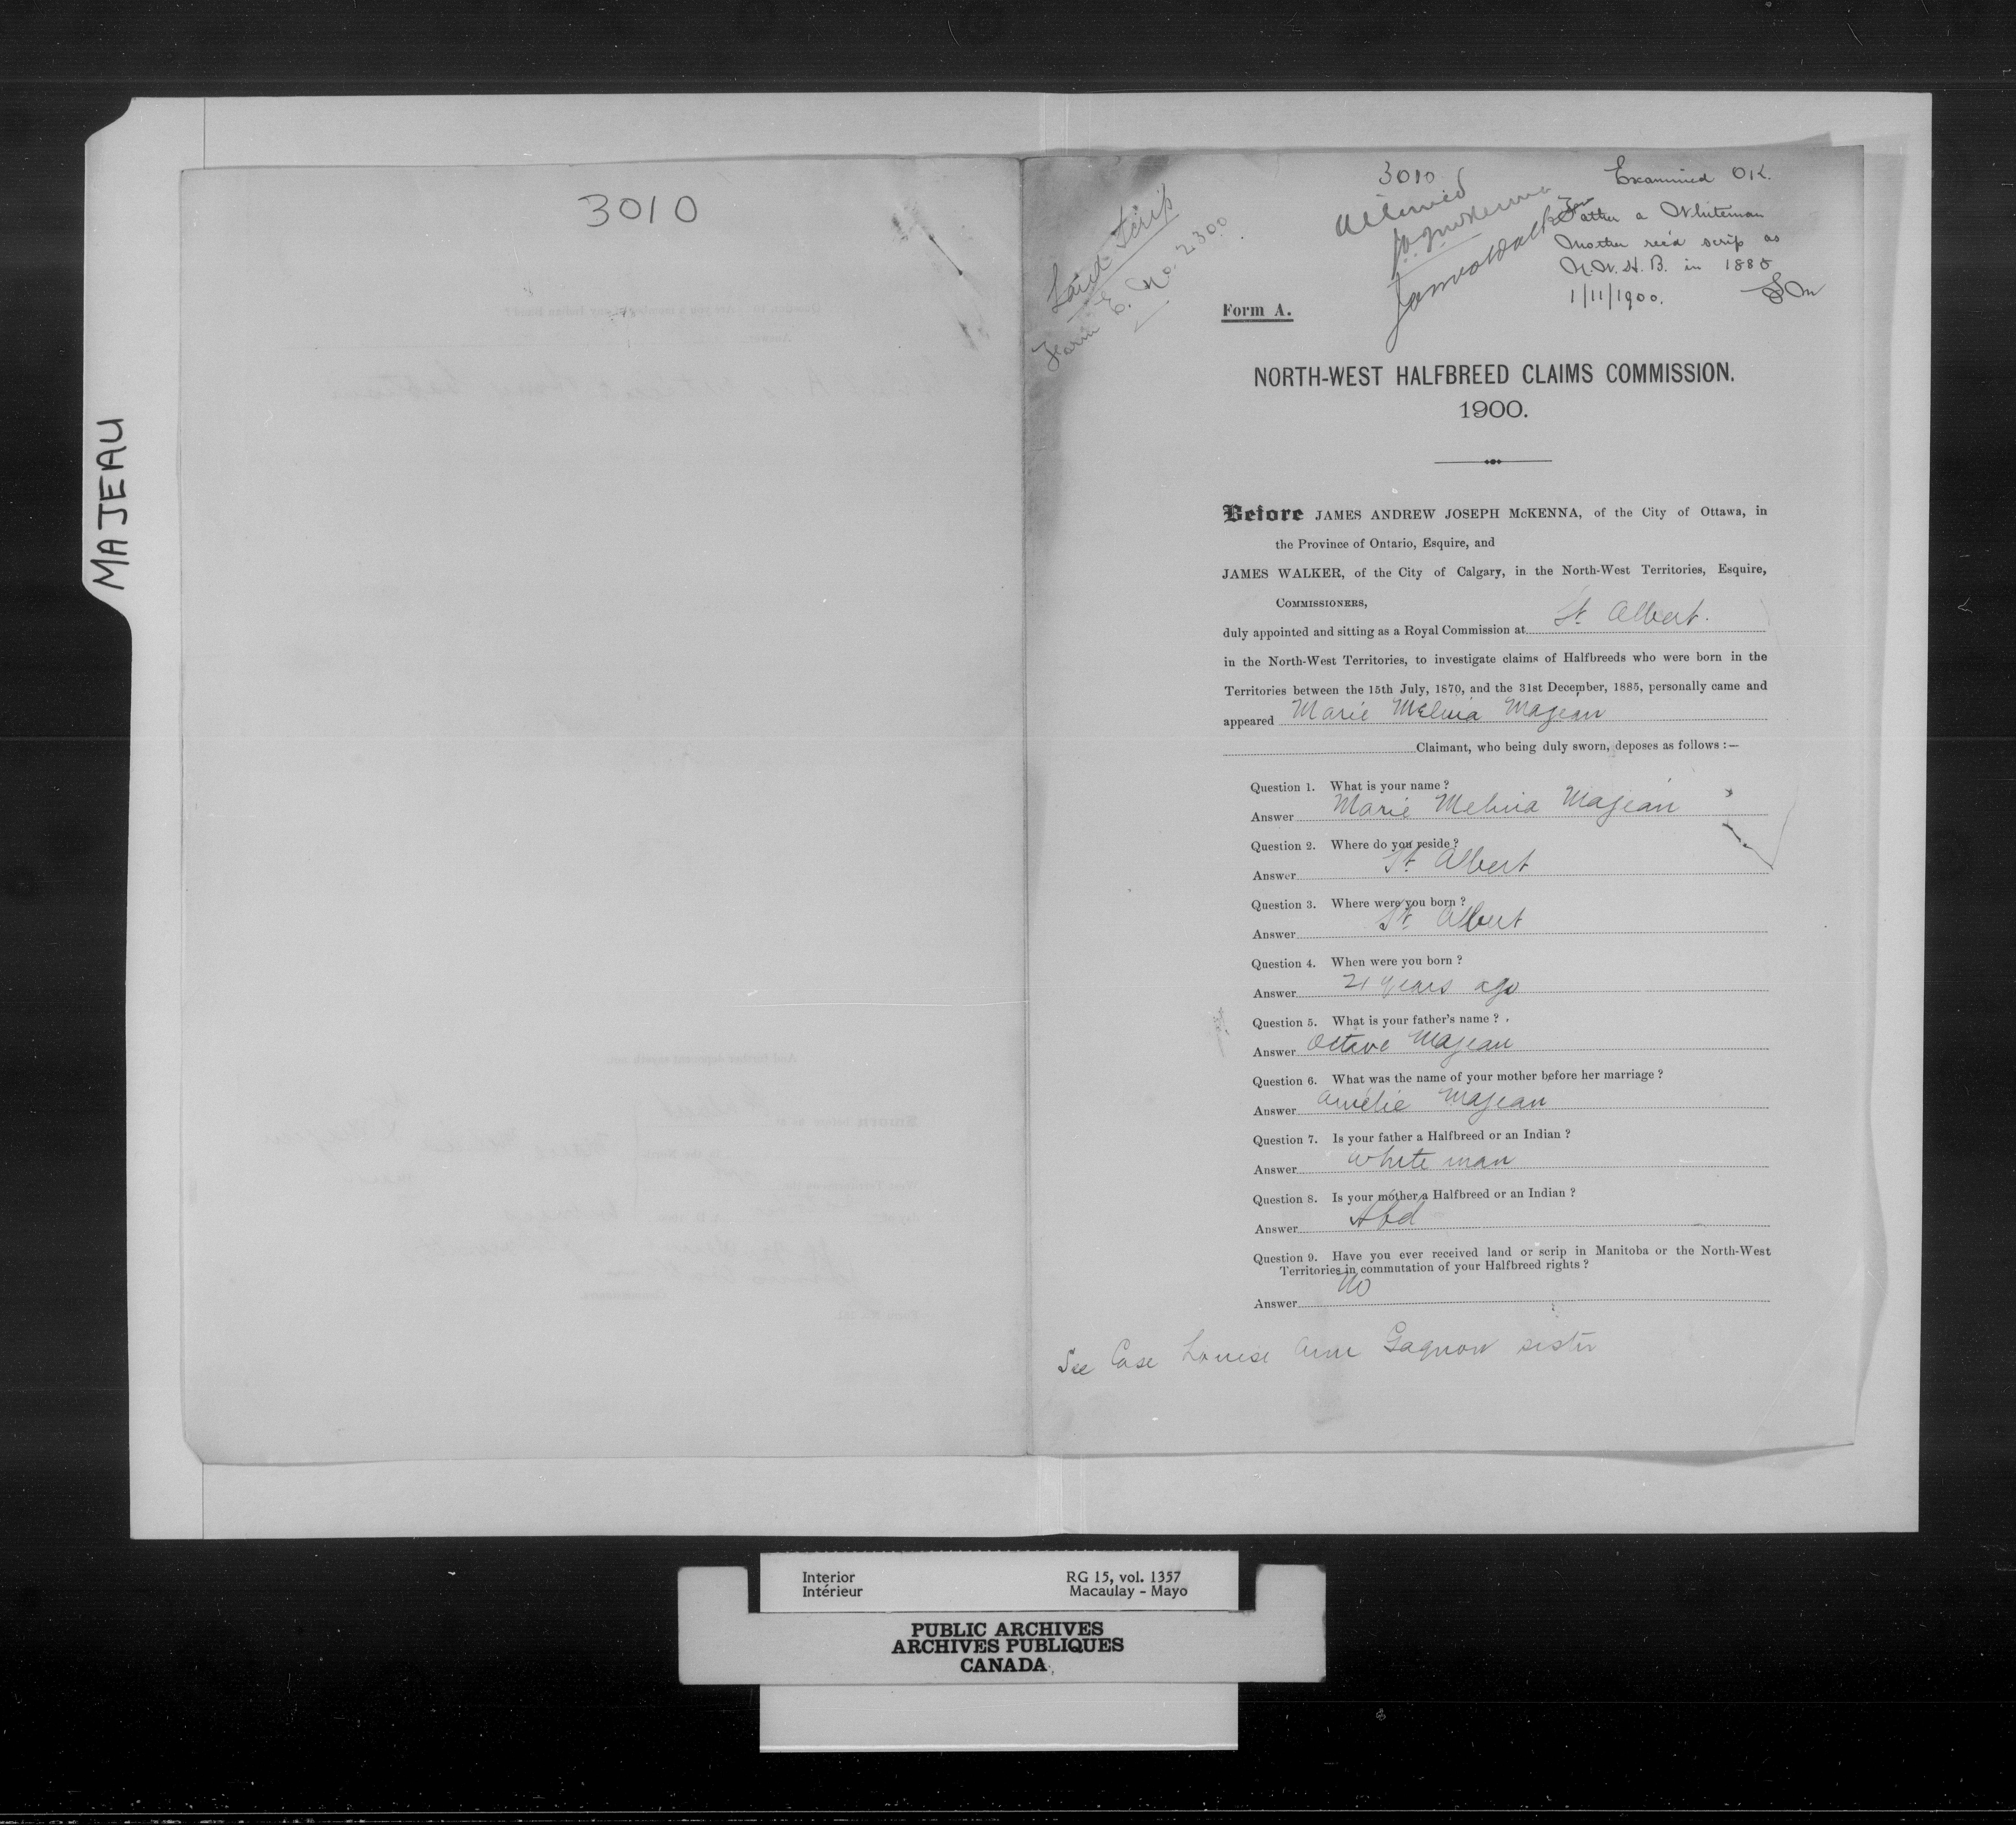 MAJEAU
3010
Land Scrip
Form E. No. 2300
3010
Allowed
JAJ McKenna
James Walker
Examined OK.
Father a Whiteman
Mother rec'd scrip as
N.W.H.B. in 1885
1/11/1900.
Form A.
NORTH-WEST HALFBREED CLAIMS COMMISSION.
1900.
Before JAMES ANDREW JOSEPH McKENNA, of the City of Ottawa, in
the Province of Ontario, Esquire, and
JAMES WALKER, of the City of Calgary, in the North-West Territories, Esquire,
COMMISSIONERS,
duly appointed and sitting as a Royal Commission at St. Albert.
in the North-West Territories, to investigate claims of Halfbreeds who were born in the
Territories between the 15th July, 1870, and the 31st December, 1885, personally came and
appeared Marie Melina Majeau
Claimant, who being duly sworn, deposes as follows :—
Question 1. What is your name ?
Answer Marie Melina Majeau
Question 2. Where do you reside ?
Answer St. Albert
Question 3. Where were you born ?
Answer St. Albert
Question 4. When were you born ?
Answer 21 years ago
Question 5. What is your father's name ?
Answer Octave Majeau
Question 6. What was the name of your mother before her marriage ?
Answer Amelie Majeau
Question 7. Is your father a Halfbreed or an Indian ?
Answer white man
Question 8. Is your mother a Halfbreed or an Indian ?
Answer Hbd
Question 9. Have you ever received land or scrip in Manitoba or the North-West
Territories in commutation of your Halfbreed rights ?
Answer No
See Case Louise Ann Gagnon sister
Interior
Intérieur
RG 15, vol. 1357
Macaulay - Mayo
PUBLIC ARCHIVES
ARCHIVES PUBLIQUES
CANADA